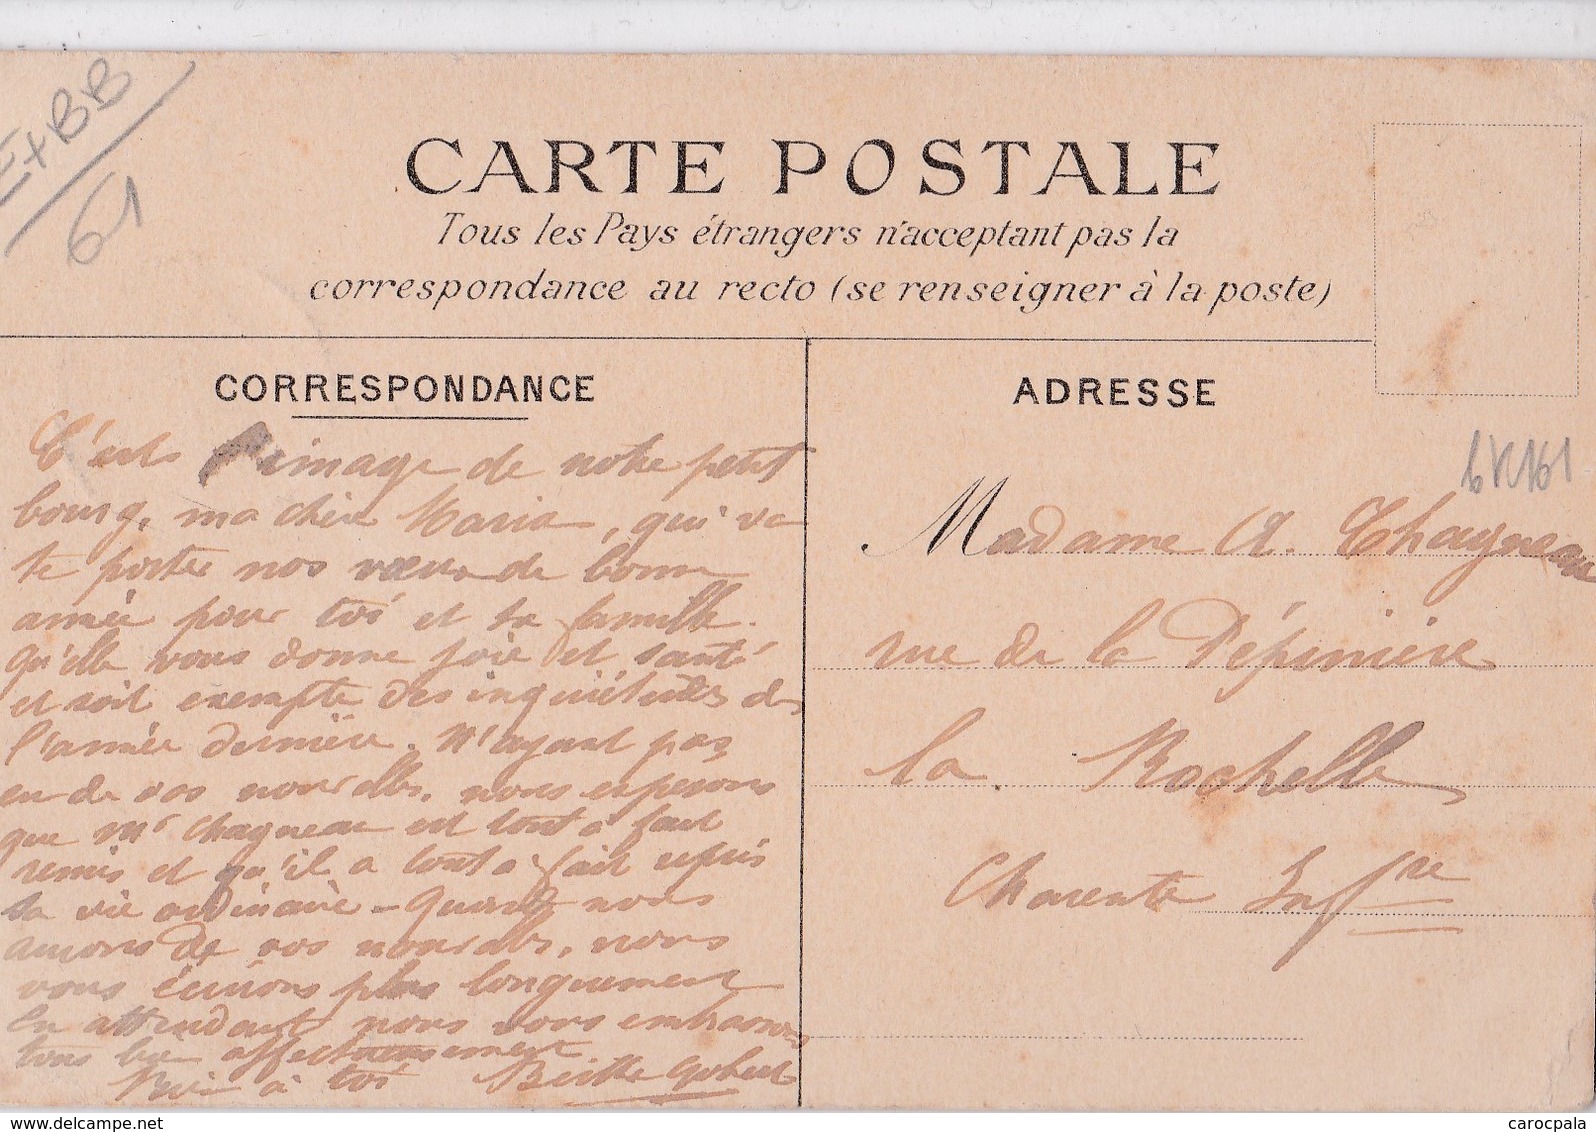 E+BB
61
CARTE POSTALE
Tous les Pays étrangers n'acceptant pas la
correspondance au recto (se renseigner à la poste)
CORRESPONDANCE
C'est l'image de notre petit
bourg, ma chère Maria, qui va
te porter nos vœux de bonne
année pour toi et ta famille.
qu'elle vous donne joie et santé
et soit exempte des inquiétudes de
l'année dernière. N'ayant pas
eu de vos nouvelles, nous espérons
que Mr Chagneau est tout à fait
remis et qu'il a tout à fait repris
sa vie ordinaire - Quand nous
aurons de vos nouvelles, nous
vous écrirons plus longuement
En attendant nous vous embrassons
tous bien affectueusement
à toi Berthe
ADRESSE
Madame A. Chagneau
rue de la Pépinière
La Rochelle
Charente Infre
carocpala